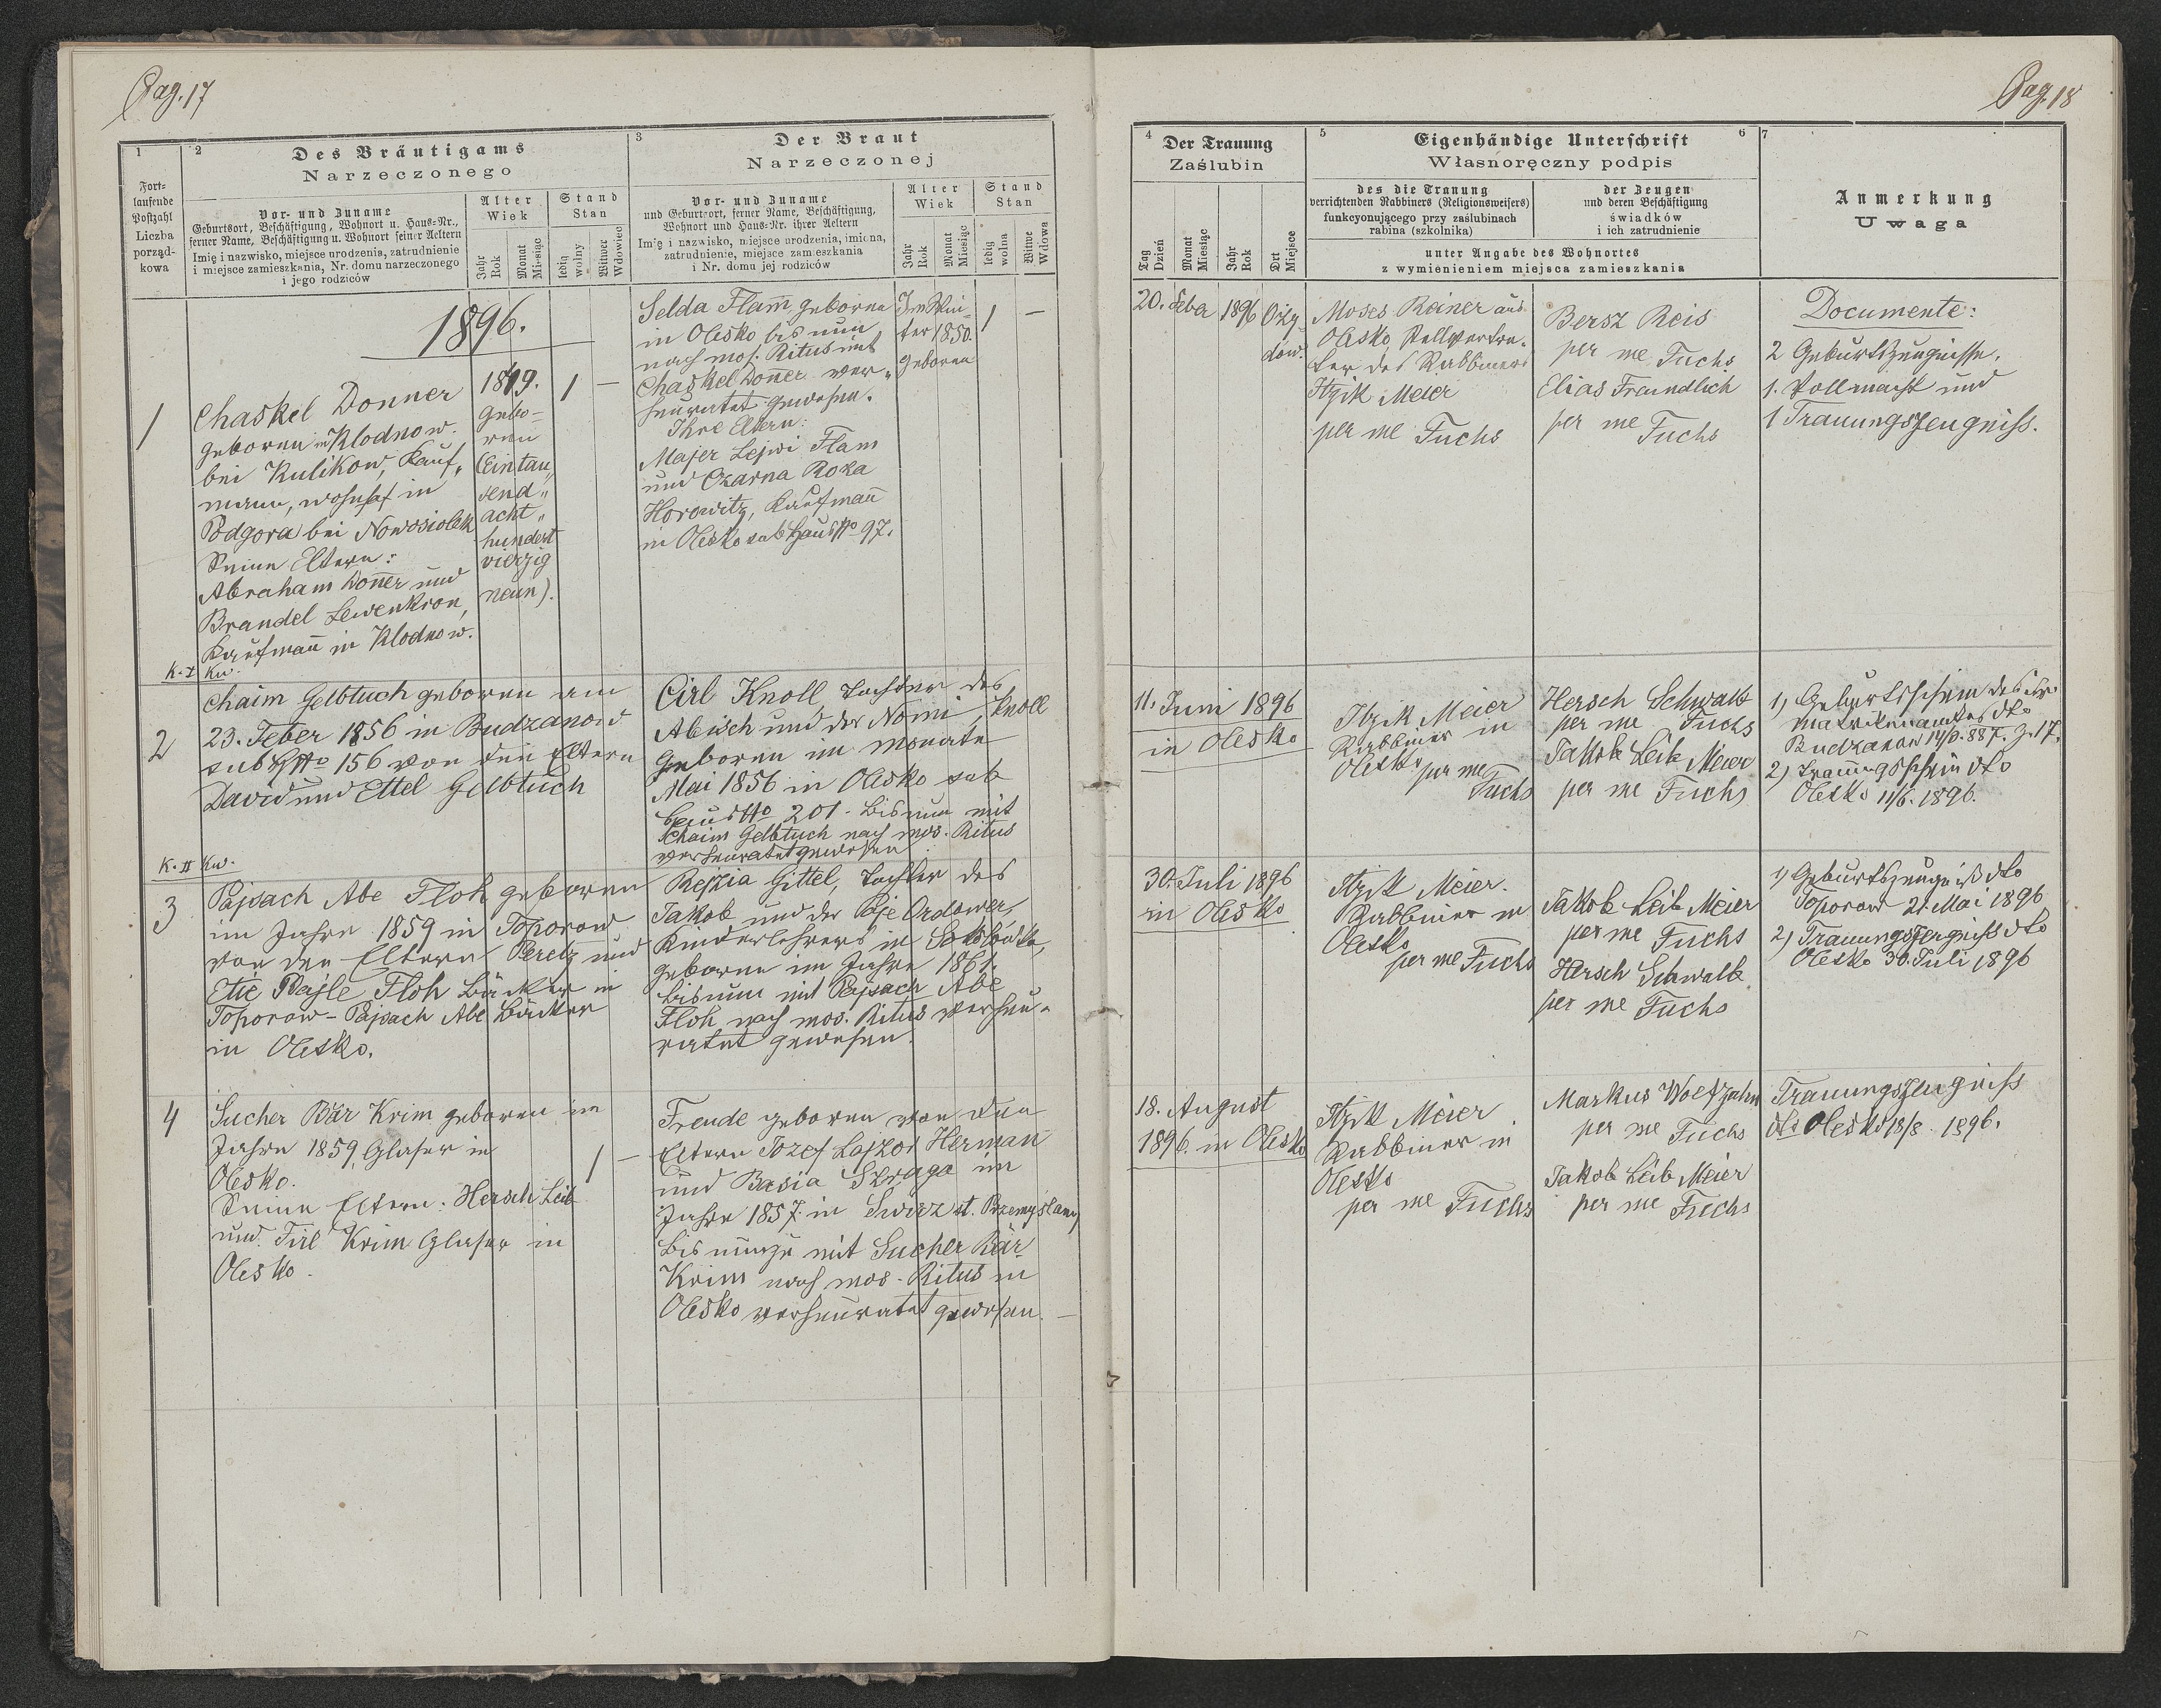 Pag. 17
1
Fort-
laufende
Postzahl
Liczba
porząd-
kowa
2
Des Bräutigams
Narzeczonego
Vor- und Zuname
Geburtsort, Beschäftigung, Wohnort u. Haus-Nr.,
ferner Name, Beschäftigung u. Wohnort seiner Aeltern
Imię i nazwisko, miejsce urodzenia, zatrudnienie
i miejsce zamieszkania, Nr. domu narzeczonego
i jego rodziców
Alter
Wiek
Jahr
Rok
Monat
Miesiąc
Stand
Stan
ledig
wolny
Witwer
Wdowiec
3
Der Braut
Narzeczonej
Vor- und Zuname
und Geburtsort, ferner Name, Beschäftigung,
Wohnort und Haus-Nr. ihrer Aeltern
Imię i nazwisko, miejsce urodzenia, imiona,
zatrudnienie, miejsce zamieszkania
i Nr. domu jej rodziców
Alter
Wiek
Jahr
Rok
Monat
Miesiąc
Stand
Stan
ledig
wolna
Witwe
Wdowa
1896.
1
Chaskel Donner
geboren in Klodnow
bei Kulikow, Kauf„
mann, wohnhaft in
Podgora bei Nowosiolek
Seine Eltern:
Abraham Donner und
Brandel Lewenkron,
Kaufmann in Klodnow.
1849.
gebo-
ren
(Eintau„
send„
acht„
hundert
vierzig
neun).
1 —
Selda Flam, geboren
in Olesko bis nun
nach mos. Ritus mit
Chaskel Donner ver„
heuratet gewesen.
Ihre Eltern:
Majer Lejwi Flam
und Czarna Roza
Horowitz, Kaufmann
in Olesko sub Haus No 97.
Im Win-
ter 1850.
geboren
1 —
K. I Kw.
2
Chaim Gelbtuch geboren am
23. Feber 1856 in Budzanow
sub HNo 156 von den Eltern
David und Ettel Gelbtuch
Cirl Knoll, Tochter des
Abisch und der Nomi Knoll
geboren im Monate
Mai 1856 in Olesko sub
Haus No 201 - bis nun mit
Chaim Gelbtuch nach mos. Ritus
verheuratet gewesen
K. II Kw.
3
Pajsach Abe Floh geboren
im Jahre 1859 in Toporow
von den Eltern Peretz und
Etie Bajle Floh Bäcker in
Toporow - Pajsach Abe Bäcker
in Olesko.
Rejzia Gittel, Tochter des
Jakob und der Paje Ordower,
Kinderlehrers in
geboren im Jahre 1861.
bis nun mit Pajsach Abe
Floh nach mos. Ritus verheu-
ratet gewesen.
4
Sucher Bär Krim geboren im
Jahre 1859, Glaser in
Olesko.
Seine Eltern: Hersch Leib
und Tirl Krim Glaser in
Olesko.
1 —
Freude geboren von den
Eltern Jozef Lajzor Herman
und Basia Szraga im
Jahre 1857. in Swirz st. Przemyslany
bis nunzu mit Sucher Bär
Krim nach mos. Ritus in
Olesko verheuratet gewesen. —
Pag. 18
4
Der Trauung
Zaślubin
Tag
Dzień
Monat
Miesiąc
Jahr
Rok
Ort
Miejsce
5
Eigenhändige Unterschrift
Własnoręczny podpis
6
des die Trauung
verrichtenden Rabbiners (Religionsweisers)
funkcyonującego przy zaślubinach
rabina (szkolnika)
der Zeugen
und deren Beschäftigung
świadków
i ich zatrudnienie
unter Angabe des Wohnortes
z wymienieniem miejsca zamieszkania
7
Anmerkung
Uwaga
20. Feba 1896 Ozy-
dow.
Moses Rainer aus
Olesko, Stellvertre-
ter des Rabbiners
Itzik Meier
per me Fuchs
Bersz Reis
per me Fuchs
Elias Freundlich
per me Fuchs
Documente:
2 Geburtszeugnisse,
1. Vollmacht und
1 Trauungszeugniss.
11. Juni 1896
in Olesko
Itzik Meier
Rabbiner in
Olesko
per me
Fuchs
Hersch Schwalb
per me Fuchs
Jakob Leib Meier
per me Fuchs
1) Geburtsschein des isr.
Matrikenamtes dto
Budzanow 887. Z. 17.
2) Trauungsschein dto
Olesko 11/6. 1896.
30. Juli 1896
in Olesko
Itzik Meier.
Rabbiner in
Olesko
per me Fuchs
Jakob Leib Meier
per me Fuchs
Hersch Schwalb
per me Fuchs
1) Geburtszeugniß dto
Toporow 21. Mai 1896
2) Trauungszeugniss dto
Olesko 30. Juli 1896
18. August
1896. in Olesko
Itzik Meier
Rabbiner in
Olesko
per me Fuchs
Markus Woefzahn
per me Fuchs
Jakob Leib Meier
per me Fuchs
Trauungszeugniss
dto Olesko 18/8 1896.